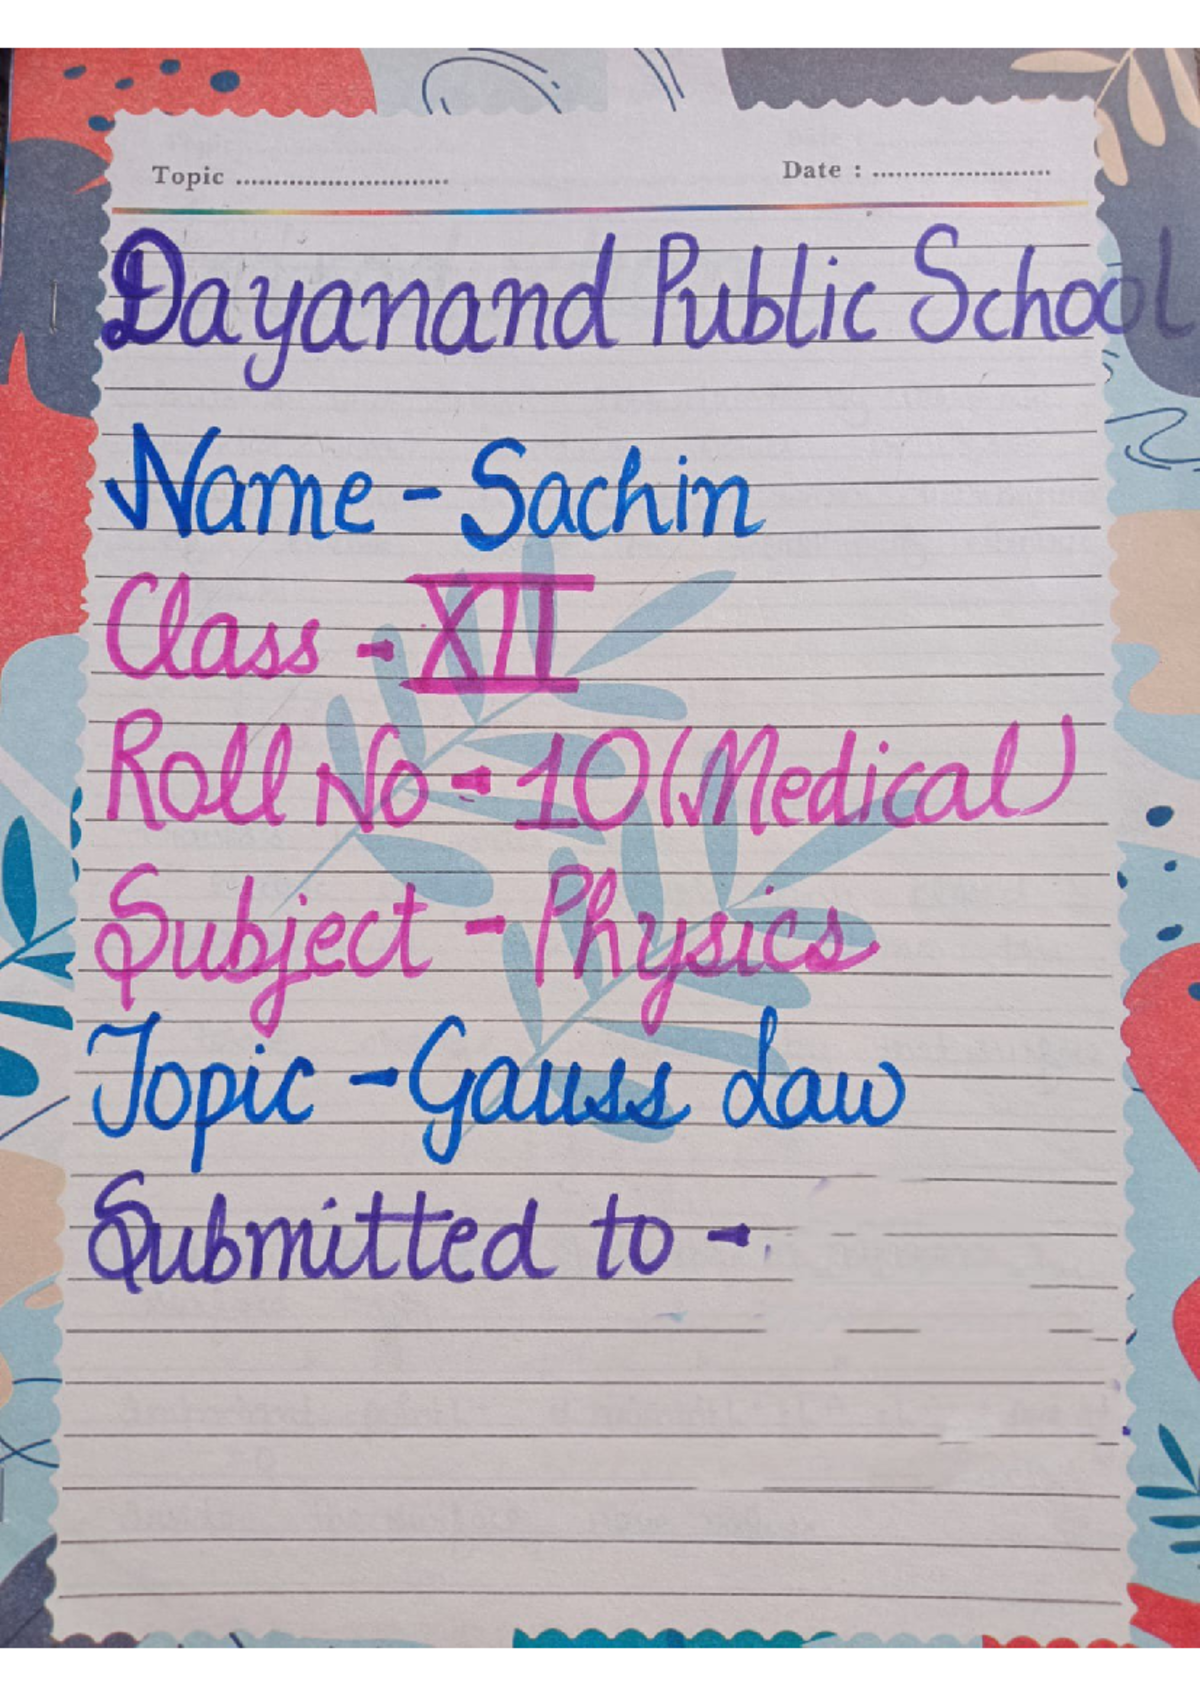 Topic ............................ Date : ........................
Dayanand Public School
Name - Sachin
Class - XII
Roll No - 10 (Medical)
Subject - Physics
Topic - Gauss Law
Submitted to -